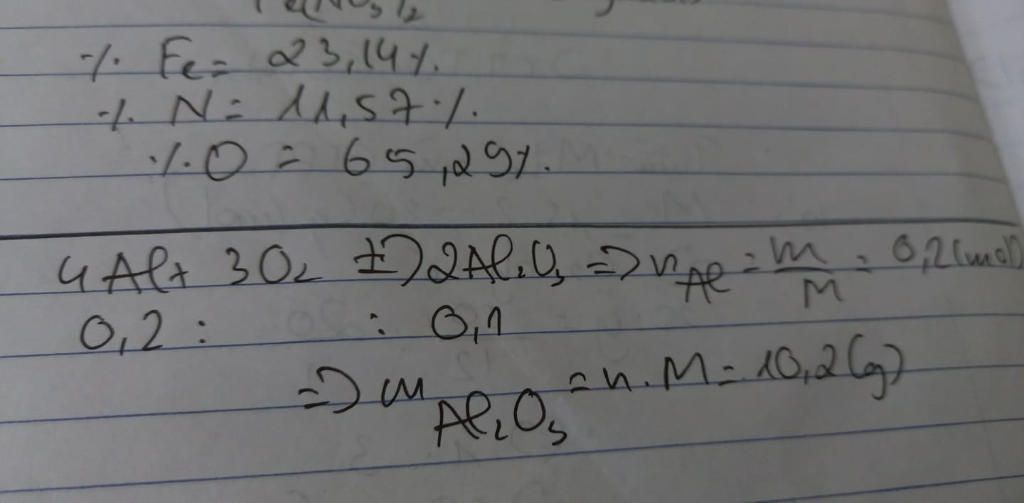 % Fe = 23,14%.
% N = 11,57%.
% O = 65,29%.
4Al + 3O₂ t⇒ 2Al₂O₃ => n Al = m/M = 0,2 (mol)
0,2 : : 0,1
=> m Al₂O₃ = n . M = 10,2 (g)